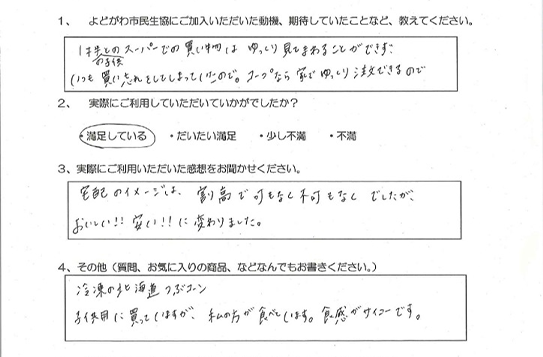 １、 よどがわ市民生協にご加入いただいた動機、期待していたことなど、教えてください。
1才半との
お子供
スーパーでの買い物は ゆっくり見てまわることができず、
いつも買い忘れをしてしまっていたので。コープなら家でゆっくり注文できるので
２、 実際にご利用していただいていかがでしたか？
・満足している ・だいたい満足 ・少し不満 ・不満
３、実際にご利用いただいた感想をお聞かせください。
宅配のイメージは、割高で可もなく不可もなくでしたが、
おいしい!! 安い!! に変わりました。
４、その他（質問、お気に入りの商品、などなんでもお書きください。）
冷凍の北海道つぶコーン
子供用に買っていますが、私の方が食べています。食感がサイコーです。